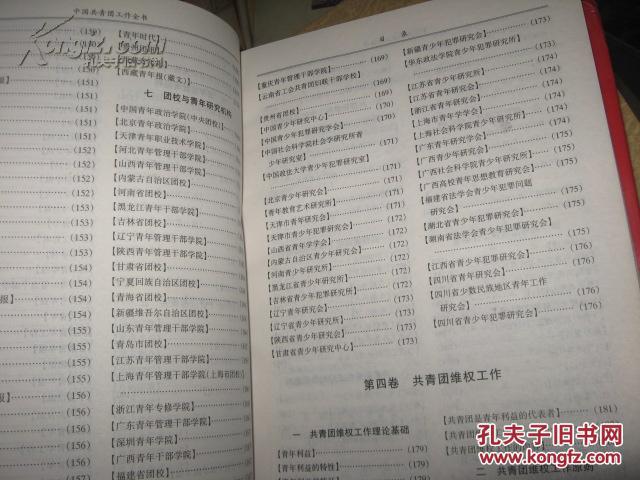 中国共青团工作全书
(150)
(151)
(151)
(151)
(151)
(151)
(152)
(152)
(152)
(153)
(153)
(153)
(154)
(154)
(154)
(154)
(155)
(155)
(155)
(155)
(156)
(156)
(156)
(156)
【青年时代】
【西藏青年报(藏文)】
七 团校与青年研究机构
【中国青年政治学院(中央团校)】
【北京青年政治学院】
【天津青年职业技术学院】
【河北青年管理干部学院】
【山西青年管理干部学院】
【内蒙古自治区团校】
【河南省团校】
【黑龙江青年干部学院】
【吉林省团校】
【辽宁青年管理干部学院】
【陕西青年管理干部学院】
【甘肃省团校】
【宁夏回族自治区团校】
【青海省团校】
【新疆维吾尔自治区团校】
【山东青年管理干部学院】
【青岛市团校】
【江苏青年管理干部学院】
【上海青年管理干部学院(上海市团校)】
【浙江青年专修学院】
【广东青年管理干部学院】
【深圳青年学院】
【广西青年管理干部学院】
【福建省团校】
目 录
【重庆青年管理干部学院】 (169)
【云南省工会共青团妇联干部学校】 (169)
【贵州省团校】 (170)
【中国青少年研究中心】 (170)
【中国青少年犯罪研究学会】 (170)
【中国社会科学院社会学研究所青
少年研究室】 (171)
【中国政法大学青少年犯罪研究室】 (171)
【北京青少年研究会】 (171)
【青年教育艺术研究所】 (171)
【天津市青年研究会】 (172)
【天津市青少年犯罪研究会】 (172)
【山西省青年学学会】 (172)
【内蒙古自治区青少年研究会】 (172)
【河南青少年研究所】 (172)
【黑龙江省青少年研究所】 (172)
【吉林省青少年犯罪研究所】 (173)
【辽宁青年研究会】 (173)
【辽宁省青少年研究所】 (173)
【陕西省青年研究会】 (173)
【甘肃省青少年研究中心】 (173)
【新疆青少年犯罪研究会】 (173)
【华东政法学院青少年犯罪研究所】
【江苏省青少年研究所】 (174)
【江苏省青年研究会】 (174)
【浙江省青年研究会】 (174)
【上海市青年学学会】 (174)
【上海社会科学院青少年研究所】 (174)
【广东青年研究学会】 (175)
【广西青少年研究会】 (175)
【广西社会科学院青少年研究所】 (175)
【广西高校青年思想教育研究会】 (175)
【福建省法学会青少年犯罪问题
研究会】 (175)
【湖北省青少年犯罪研究会】 (175)
【湖南省法学会青少年犯罪研究会】
(176)
【江西省青少年研究会】 (176)
【四川省青年研究会】 (176)
【四川省少数民族地区青年工作
研究会】 (176)
【四川省青少年犯罪研究会】 (176)
第四卷 共青团维权工作
一 共青团维权工作理论基础
【青年利益】 (179)
【青年利益的特性】 (179)
【共青团是青年利益的代表者】 (181)
二 共青团维权工作原则
孔夫子旧书网